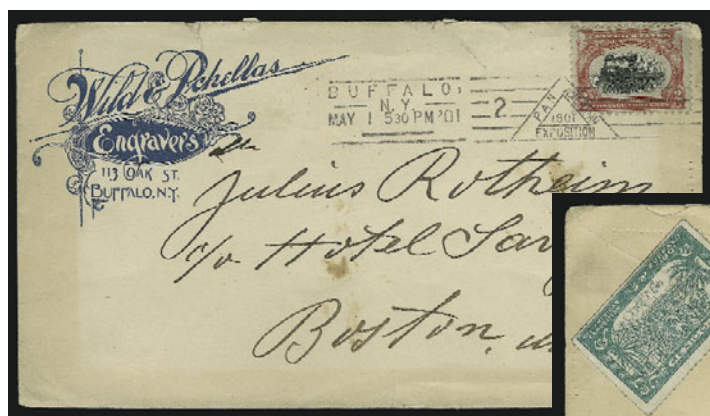 Wild & Pchellas
Engravers
113 OAK ST.
BUFFALO. N.Y.
BUFFALO,
N.Y.
MAY 1 530 PM '01
2
PAN
1901
EXPOSITION
Julius Rotheim
c/o Hotel Sav
Boston,